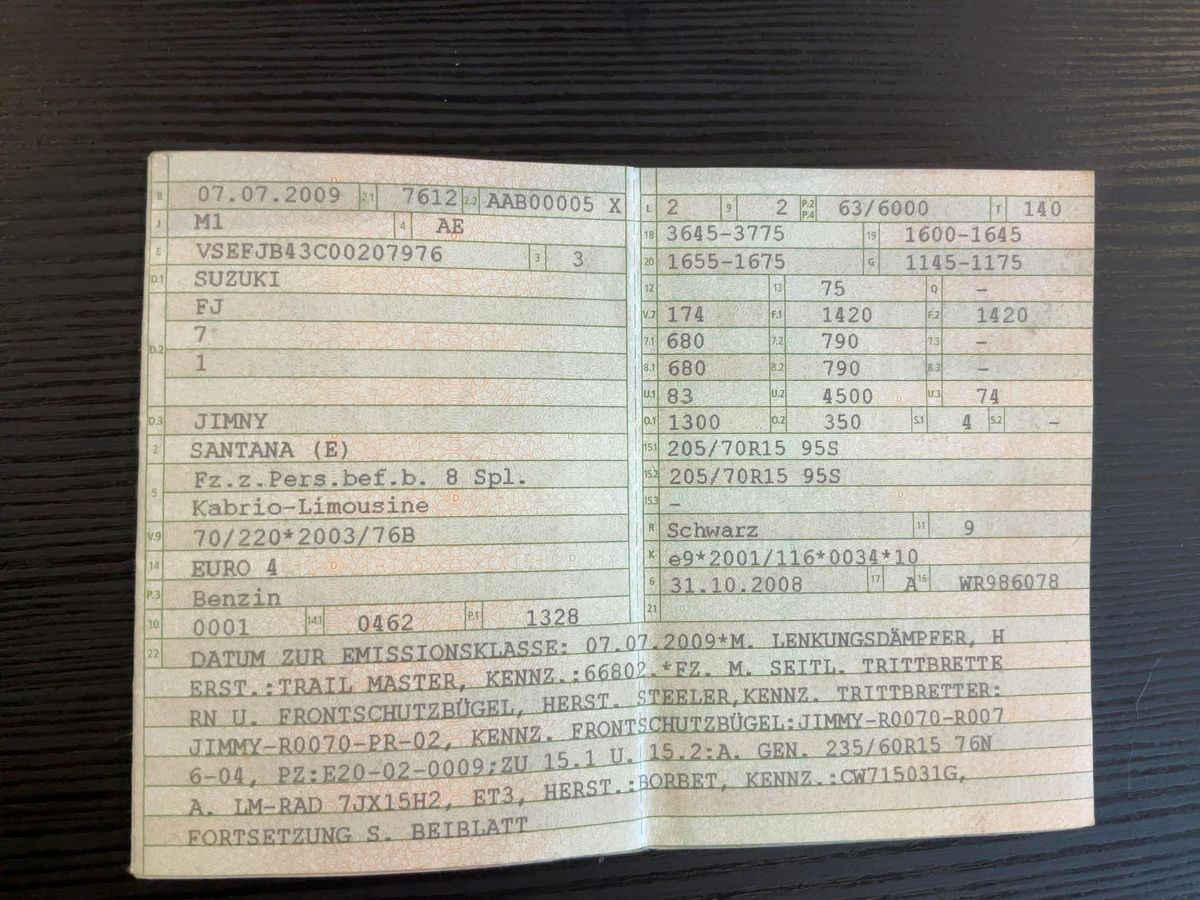 B 07.07.2009 2.1 7612 2.2 AAB00005 X
J M1 4 AE
E VSEFJB43C00207976 3 3
D.1 SUZUKI
FJ
7
D.2 1
D.3 JIMNY
2 SANTANA (E)
Fz.z.Pers.bef.b. 8 Spl.
5 Kabrio-Limousine
V.9 70/220*2003/76B
14 EURO 4
P.3 Benzin
10 0001 14.1 0462 P.1 1328
L 2 9 2 P.2 P.4 63/6000 T 140
18 3645-3775 19 1600-1645
20 1655-1675 G 1145-1175
12 13 75 Q -
V.7 174 F.1 1420 F.2 1420
7.1 680 7.2 790 7.3 -
8.1 680 8.2 790 8.3 -
U.1 83 U.2 4500 U.3 74
O.1 1300 O.2 350 S.1 4 S.2 -
15.1 205/70R15 95S
15.2 205/70R15 95S
15.3 -
R Schwarz 11 9
K e9*2001/116*0034*10
6 31.10.2008 17 A 16 WR986078
21
22 DATUM ZUR EMISSIONSKLASSE: 07.07.2009*M. LENKUNGSDÄMPFER, H
ERST.:TRAIL MASTER, KENNZ.:66802.*FZ. M. SEITL. TRITTBRETTE
RN U. FRONTSCHUTZBÜGEL, HERST. STEELER,KENNZ. TRITTBRETTER:
JIMMY-R0070-PR-02, KENNZ. FRONTSCHUTZBÜGEL:JIMMY-R0070-R007
6-04, PZ:E20-02-0009;ZU 15.1 U. 15.2:A. GEN. 235/60R15 76N
A. LM-RAD 7JX15H2, ET3, HERST.:BORBET, KENNZ.:CW715031G,
FORTSETZUNG S. BEIBLATT